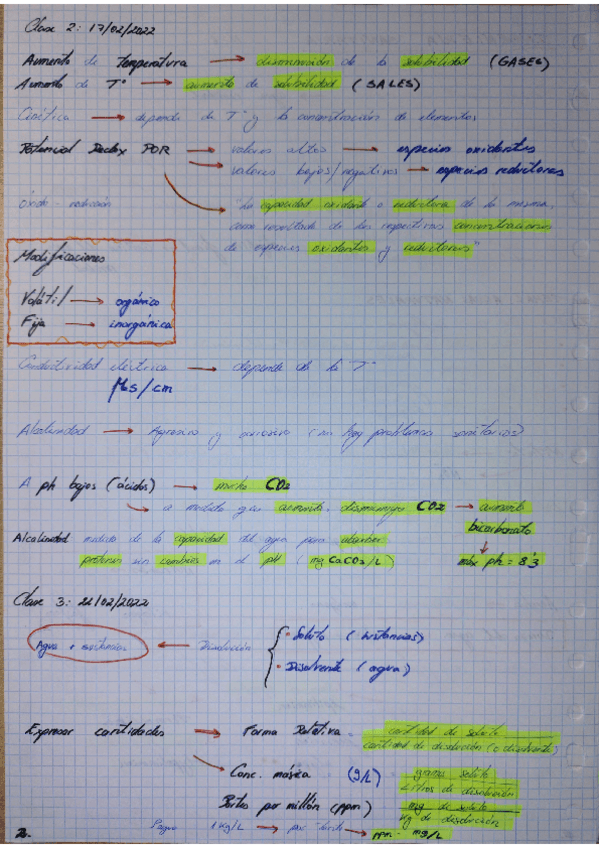 Clase 2: 17/02/2022
Aumento de temperatura → disminución de la solubilidad (GASES)
Aumento de Tº → aumento de solubilidad (SALES)
Cinética → depende de Tº y la concentración de elementos
Potencial Redox POR → valores altos → especies oxidantes
→ valores bajos/negativos → especies reductoras
Óxido - reducción → "La capacidad oxidante o reductora de la misma,
como resultado de las respectivas concentraciones
de especies oxidantes y reductoras"
Modificaciones
Volátil → orgánico
Fija → inorgánica
Conductividad eléctrica → depende de la Tº
μs/cm
Alcalinidad → Agresivo y corrosivo (no hay problemas sanitarios)
A ph bajos (ácidos) → mucho CO2
→ a medida que aumenta, disminuye CO2 → aumenta
bicarbonato
Alcalinidad medida de la capacidad del agua para absorber
máx ph = 8'3
protones sin cambios en el pH (mg CaCO3/L)
Clase 3: 21/02/2022
Agua + sustancias ← Disolución
· Soluto (sustancias)
· Disolvente (agua)
Expresar cantidades → Forma Relativa = cantidad de soluto
cantidad de disolución (o disolvente)
→ Conc. másica (g/L) gramos soluto
Litros de disolución
Partes por millón (ppm) mg de soluto
kg de disolución
1 kg/L → por tanto → ppm = mg/L
2.